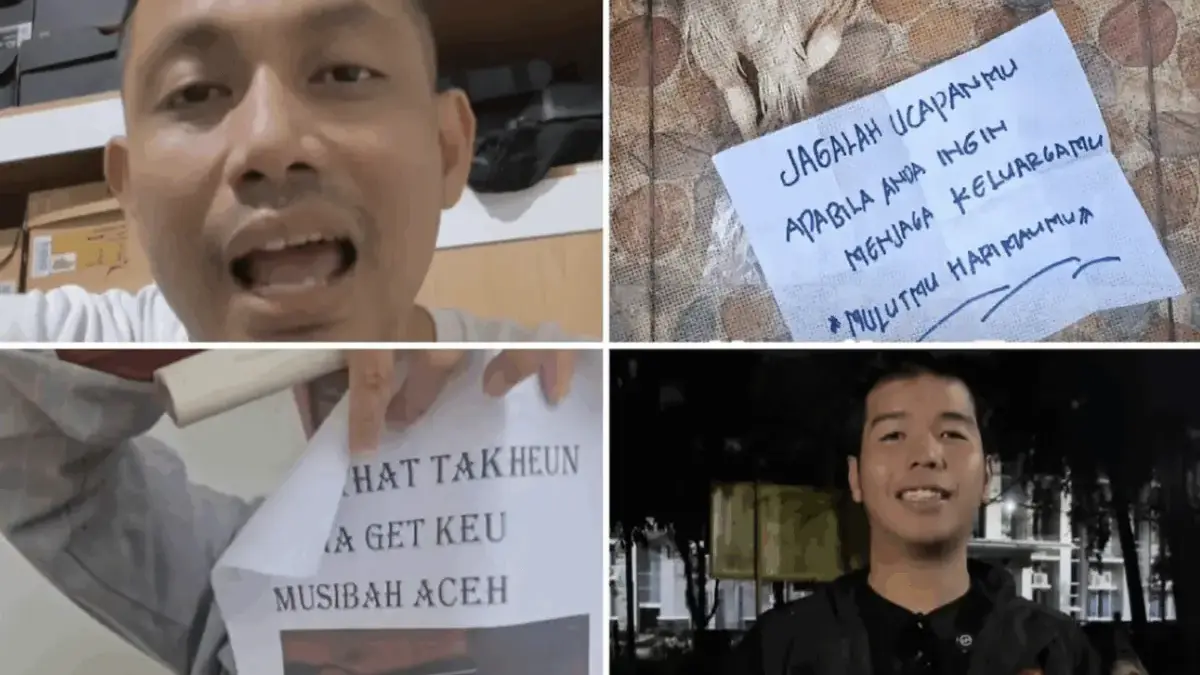 JAGALAH UCAPANMU
APABILA ANDA INGIN
MENJAGA KELUARGAMU
"MULUTMU HARIMAUMU"
TAKHEUN
GET KEU
MUSIBAH ACEH